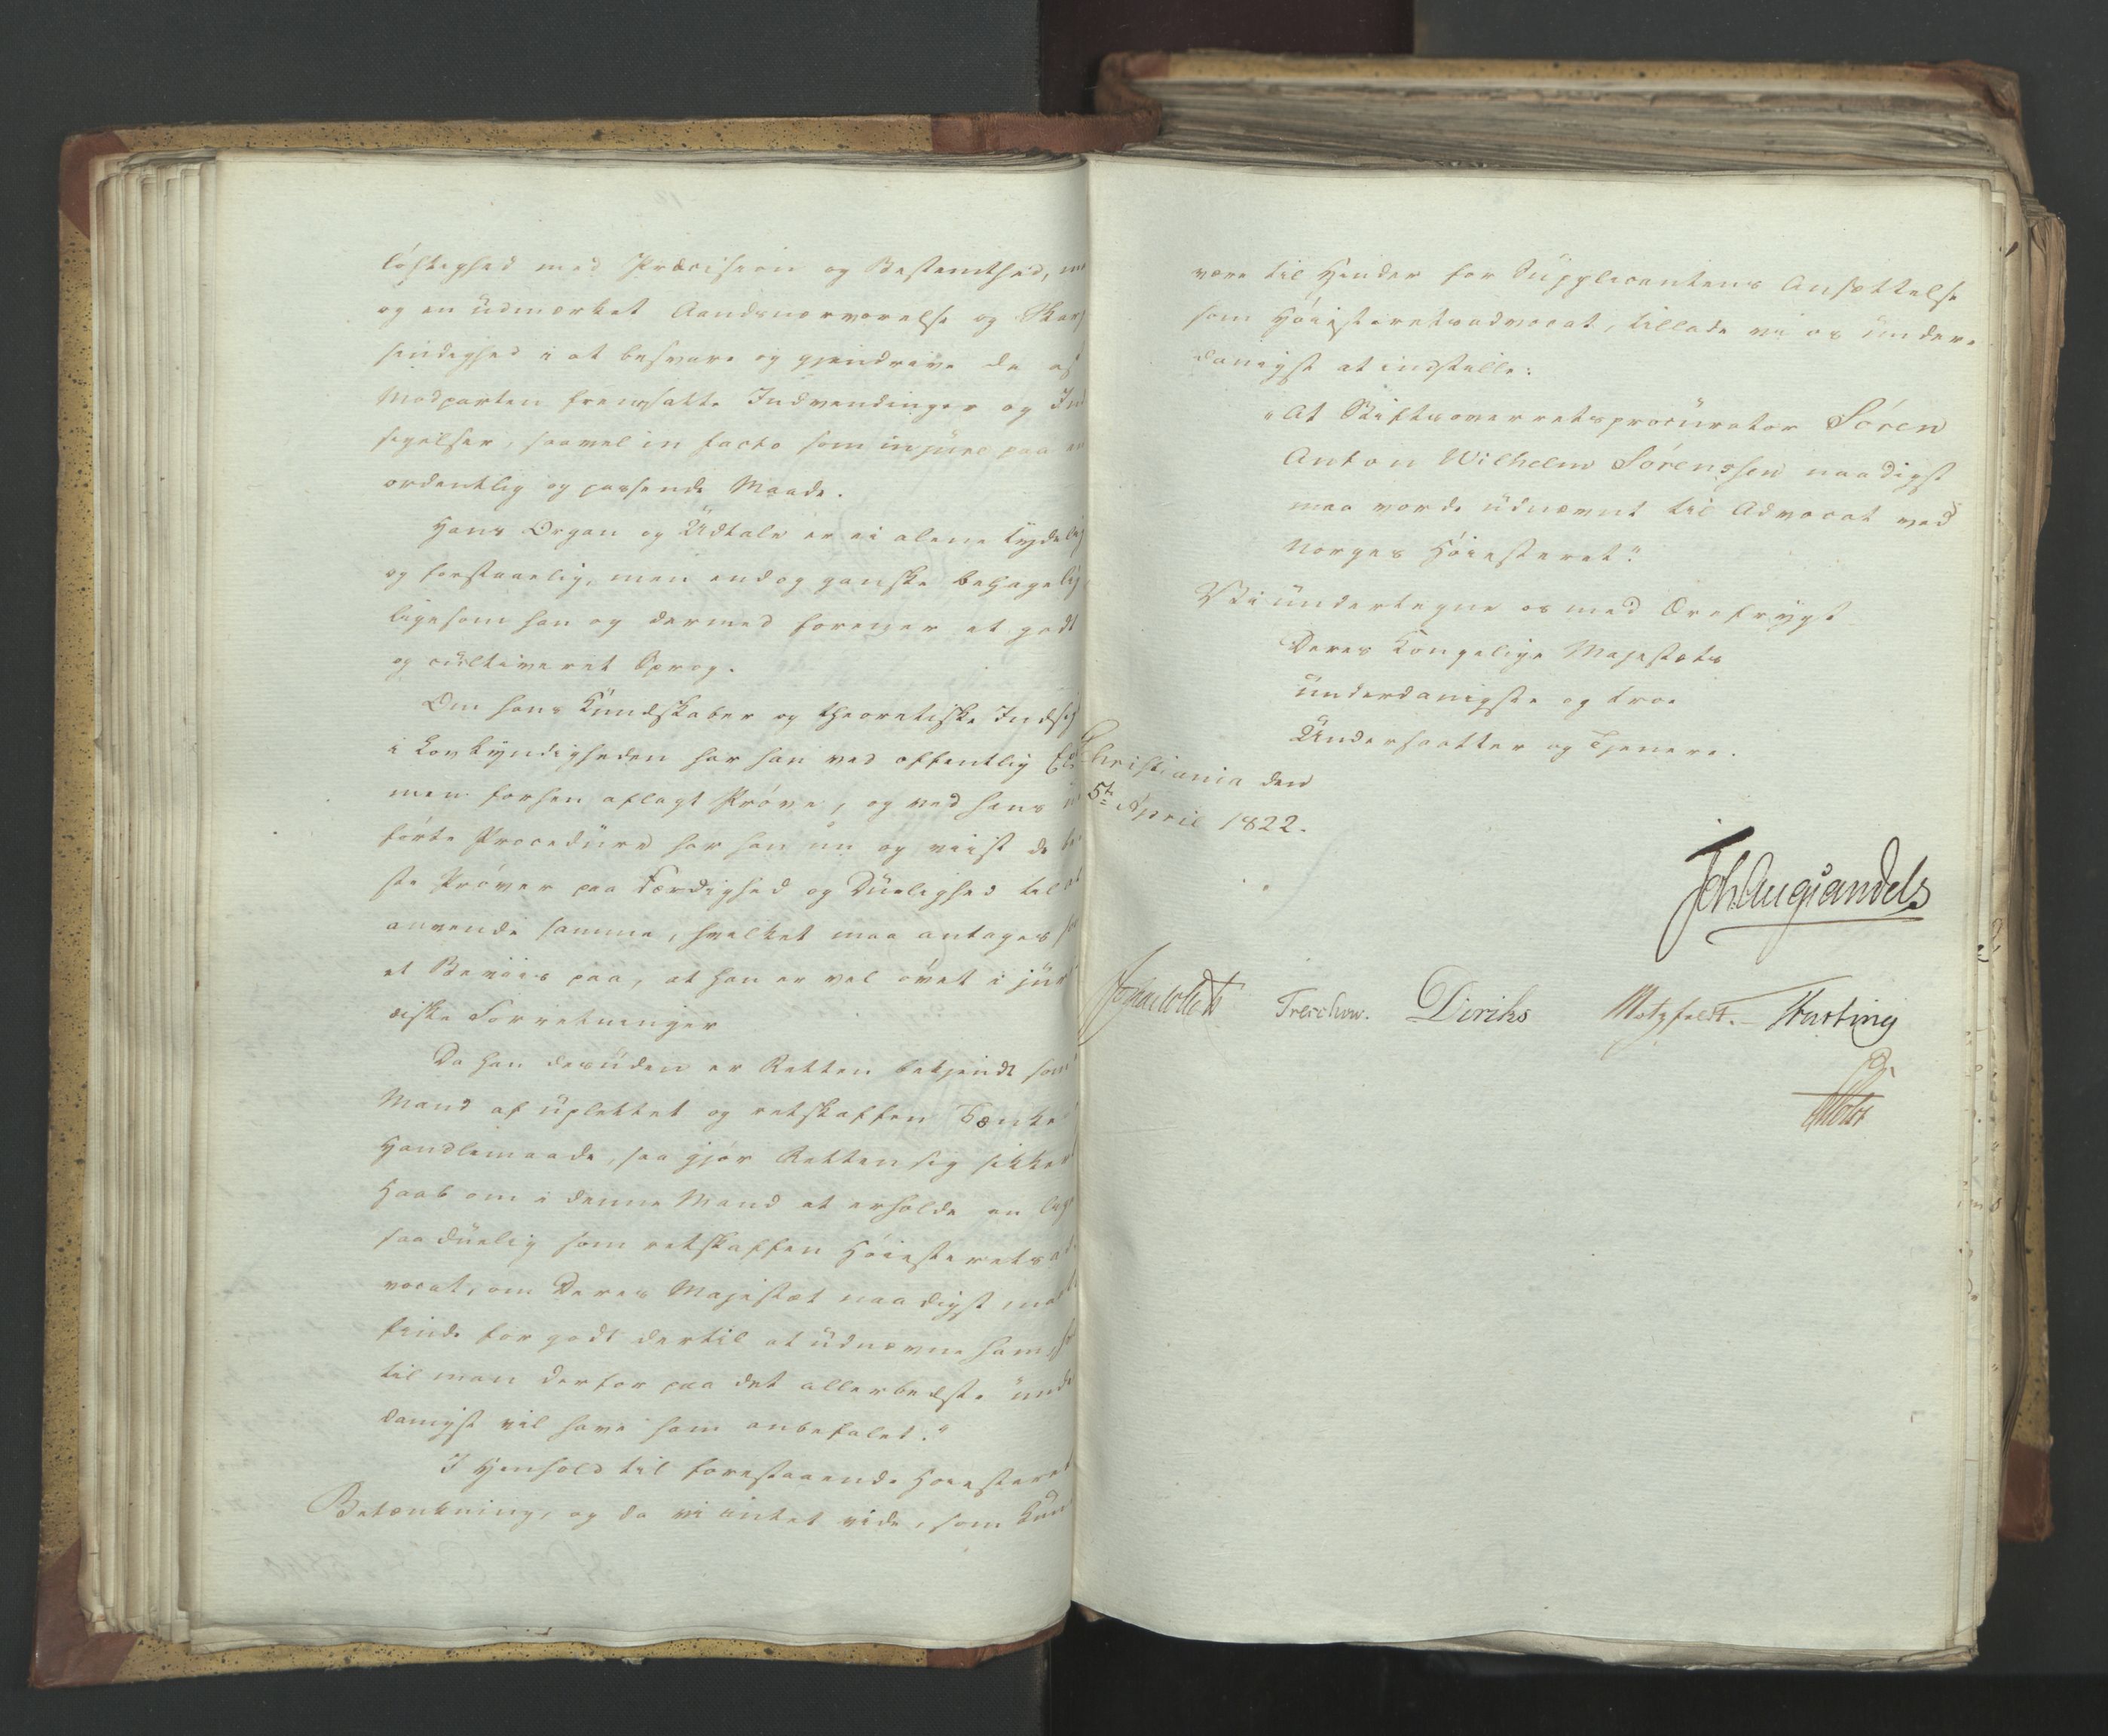 løshed med Præcision og Bestemthed,
og en üdmærket Aandsnærværelse og Skarp
sindighed i at besvare og gjendrive de af
Modparten fremsatte Indvendinger og Ind
sigelser, saavel in facto som in jure paa en
ordentlig og passende Maade.
Hans Organ og Üdtale er ei alene tydelig
og forstaaelig, men endog ganske behagelig
ligesom han og dermed forener et godt
og cultiveret Sprog.
Om hans Kündskaber og theoretiske Indsigt
i Lovkyndigheden har han ved offentlig Ex
men forhen aflagt Prøve, og ved hans üd
førte Procedüre har han nu og viist de
ste Prøver paa Færdighed og Düelighed til at
anvende samme, hvilket maa antages for
et Beviis paa, at han er vel øvet i jüri
diske Forretninger
Da han desüden er Retten bekjendt som
Mand af üplettet og retskaffen Tænke
Handlemaade, saa gjør Retten sig sikkert
Haab om i denne Mand at erholde en lige
saa düelig som retskaffen Høiesteretsad
vocat, om Deres Majestæt naadigst maatte
finde for godt dertil at üdnævne ham,
til man derfor paa det allerbedste ünder
danigst vil have ham anbefalet."
I Henhold til forestaaende Høiesterets
Betænkning, og da vi intet vide, som Kunde
være til Hinder for Süpplicantens Ansættelse
som Høiesteretsadvocat, tillade vi os ünder-
danigst at indstille:
"At Stiftsoverretsprocürator Sören
Anton Wilhelm Sörenssen naadigst
maa vorde üdnævnt til Advocat ved
Norges Høiesteret."
Vi ündertegne os med Ærefrygt
Deres Kongelige Majestæts
ünderdanigste og troe
Ündersaatter og Tjenere.
Christiania den
5te April 1822.
Joh Aug Sandels
Treschow. Diriks Motzfeldt. Fasting